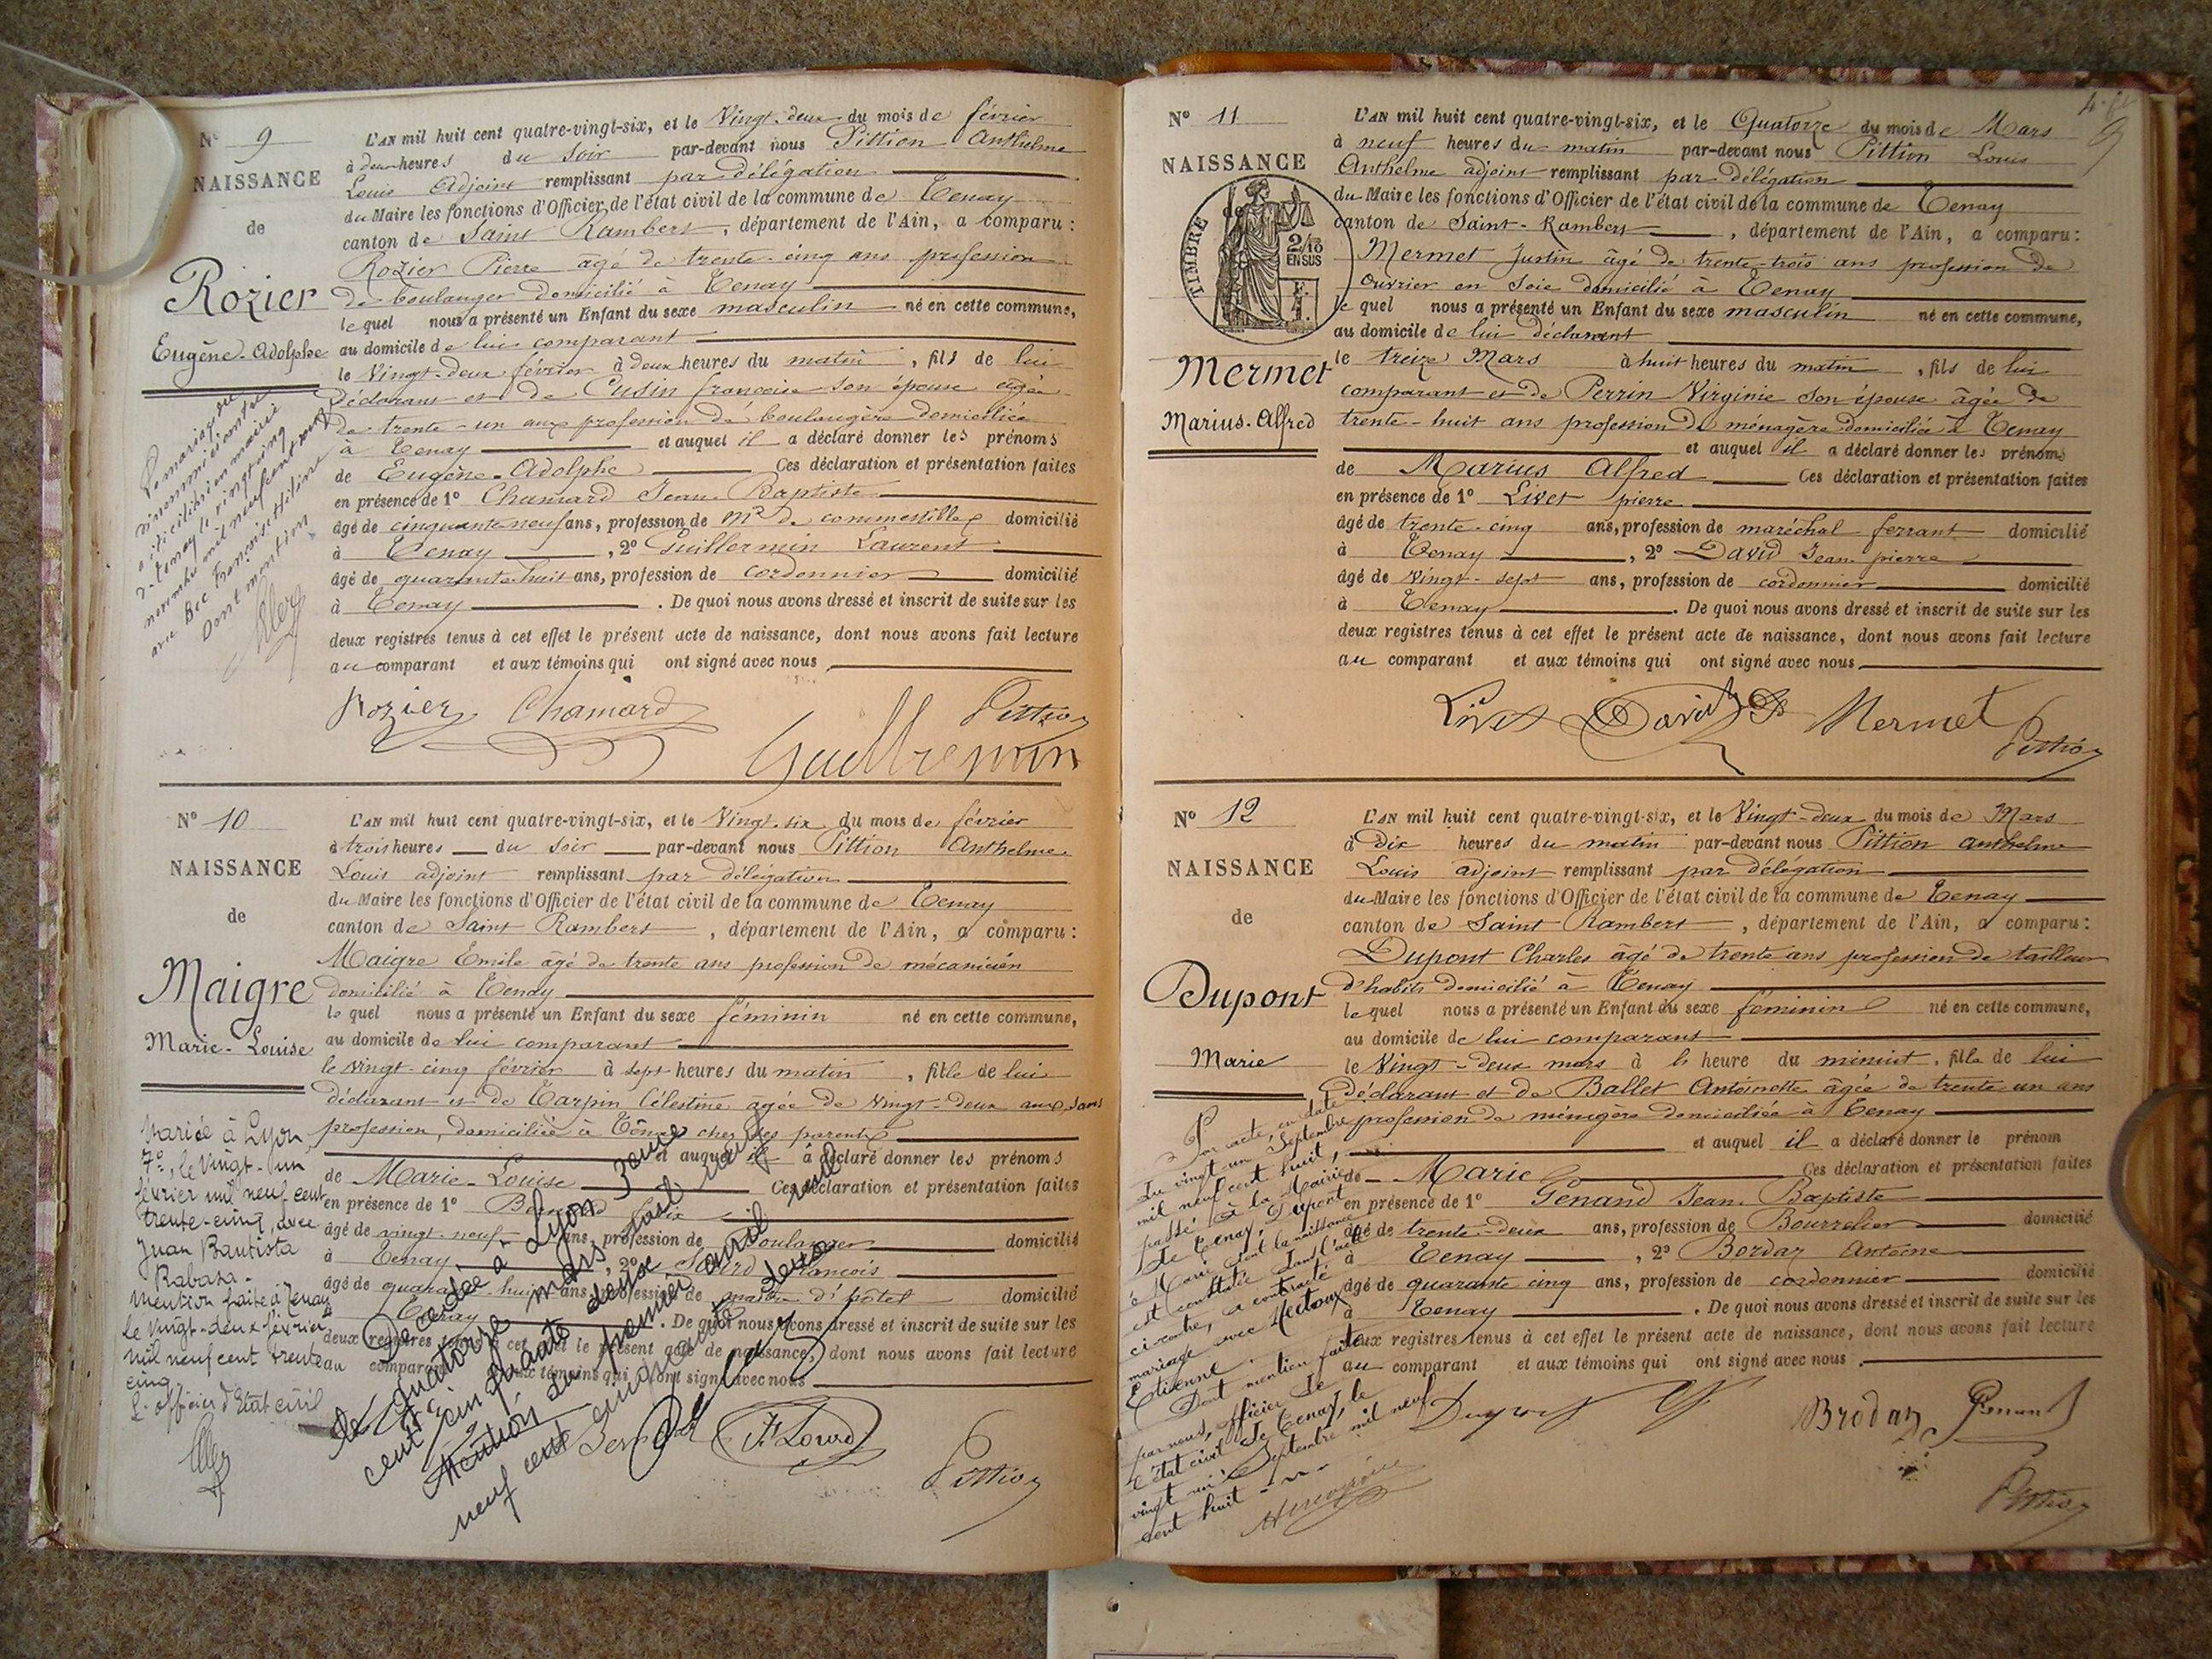 N° 9
NAISSANCE
de
Rozier
Eugène-Adolphe
L'AN mil huit cent quatre-vingt-six, et le Vingt-deux du mois de février
à deux heures du soir par-devant nous Pittion Anthelme
Louis Adjoint remplissant par délégation
du Maire les fonctions d'Officier de l'état civil de la commune de Tenay
canton de Saint Rambert, département de l'Ain, a comparu :
Rozier Pierre âgé de trente-cinq ans profession
de boulanger domicilié à Tenay
le quel nous a présenté un Enfant du sexe masculin né en cette commune,
au domicile de lui comparant
le Vingt-deux février à deux heures du matin, fils de lui
déclarant et de Cusin françoise son épouse âgée
de trente-un ans profession de boulangère domiciliée
à Tenay et auquel il a déclaré donner les prénoms
de Eugène-Adolphe Ces déclaration et présentation faites
en présence de 1° Chamard Jean Baptiste
âgé de cinquante neuf ans, profession de Md de commestibles domicilié
à Tenay, 2° Guillermin Laurent
âgé de quarante-huit ans, profession de cordonnier domicilié
à Tenay. De quoi nous avons dressé et inscrit de suite sur les
deux registres tenus à cet effet le présent acte de naissance, dont nous avons fait lecture
au comparant et aux témoins qui ont signé avec nous
Le mariage du
susnommé
a été célébré en mairie
de Tenay le vingt cinq
novembre mil neuf cent
avec Bec Françoise
Dont mention
Rozier Chamard Pittion
Guillermin
N° 10
NAISSANCE
de
Maigre
Marie-Louise
L'AN mil huit cent quatre-vingt-six, et le Vingt-six du mois de février
à trois heures du soir par-devant nous Pittion Anthelme
Louis adjoint remplissant par délégation
du Maire les fonctions d'Officier de l'état civil de la commune de Tenay
canton de Saint Rambert, département de l'Ain, a comparu :
Maigre Emile âgé de trente ans profession de mécanicien
domicilié à Tenay
le quel nous a présenté un Enfant du sexe féminin né en cette commune,
au domicile de lui comparant
le Vingt-cinq février à sept heures du matin, fille de lui
déclarant et de Tarpin Célestine agée de Vingt-deux ans, sans
profession, domiciliée à Tenay chez ses parents
et auquel il a déclaré donner les prénoms
de Marie-Louise Ces déclaration et présentation faites
en présence de 1°
âgé de vingt-neuf ans, profession de boulanger domicilié
à Tenay, 2° François
âgé de quarante-huit ans, profession de maître d'hôtel domicilié
à Tenay. De quoi nous avons dressé et inscrit de suite sur les
deux registres tenus à cet effet le présent acte de naissance, dont nous avons fait lecture
au comparant et aux témoins qui ont signé avec nous
Mariée à Lyon
7°, le Vingt-un
février mil neuf cent
trente-cinq, avec
Juan Bautista
Rabasa.
Mention faite à Tenay
le Vingt-deux février
mil neuf cent trente
cinq.
L'officier d'Etat civil
Décédée à Lyon 3eme
le quatorze mars mil neuf
cent cinquante deux
Mention du premier avril mil
neuf cent cinquante deux
Pittion
N° 11
NAISSANCE
de
TIMBRE
2/10
EN SUS
Mermet
Marius-Alfred
L'AN mil huit cent quatre-vingt-six, et le Quatorze du mois de Mars
à neuf heures du matin par-devant nous Pittion Louis
Anthelme adjoint remplissant par délégation
du Maire les fonctions d'Officier de l'état civil de la commune de Tenay
canton de Saint-Rambert, département de l'Ain, a comparu :
Mermet Justin âgé de trente-trois ans profession de
ouvrier en soie domicilié à Tenay
le quel nous a présenté un Enfant du sexe masculin né en cette commune,
au domicile de lui déclarant
le treize Mars à huit heures du matin, fils de lui
comparant et de Perrin Virginie son épouse âgée de
trente-huit ans profession de ménagère domiciliée à Tenay
et auquel il a déclaré donner les prénoms
de Marius Alfred Ces déclaration et présentation faites
en présence de 1° Livet pierre
âgé de trente-cinq ans, profession de maréchal ferrant domicilié
à Tenay, 2° David Jean pierre
âgé de vingt-sept ans, profession de cordonnier domicilié
à Tenay. De quoi nous avons dressé et inscrit de suite sur les
deux registres tenus à cet effet le présent acte de naissance, dont nous avons fait lecture
au comparant et aux témoins qui ont signé avec nous
Livet David Mermet
Pittion
N° 12
NAISSANCE
de
Dupont
Marie
L'AN mil huit cent quatre-vingt-six, et le Vingt-deux du mois de Mars
à Dix heures du matin par-devant nous Pittion anthelme
Louis adjoint remplissant par délégation
du Maire les fonctions d'Officier de l'état civil de la commune de Tenay
canton de Saint Rambert, département de l'Ain, a comparu :
Dupont Charles âgé de trente ans profession de tailleur
d'habits domicilié à Tenay
le quel nous a présenté un Enfant du sexe féminin né en cette commune,
au domicile de lui comparant
le Vingt-deux mars à heure du minuit, fille de lui
déclarant et de Ballet Antoinette âgée de trente un ans
profession de ménagère domiciliée à Tenay
et auquel il a déclaré donner le prénom
de Marie Ces déclaration et présentation faites
en présence de 1° Génand Jean Baptiste
âgé de trente-deux ans, profession de Bourrelier domicilié
à Tenay, 2° Bordaz Antoine
âgé de quarante cinq ans, profession de cordonnier domicilié
à Tenay. De quoi nous avons dressé et inscrit de suite sur les
deux registres tenus à cet effet le présent acte de naissance, dont nous avons fait lecture
au comparant et aux témoins qui ont signé avec nous.
Par acte, en date
du vingt-un Septembre
mil neuf cent huit,
passé à la Mairie
de Tenay, Dupont
Marie dont la naissance
est constatée dans l'acte
ci-contre, a contracté
mariage avec
Etienne.
Dont mention faite
par nous, officier de
l'état civil de Tenay, le
vingt un Septembre mil neuf
cent huit
Dupont Brodaz Genand
Pittion